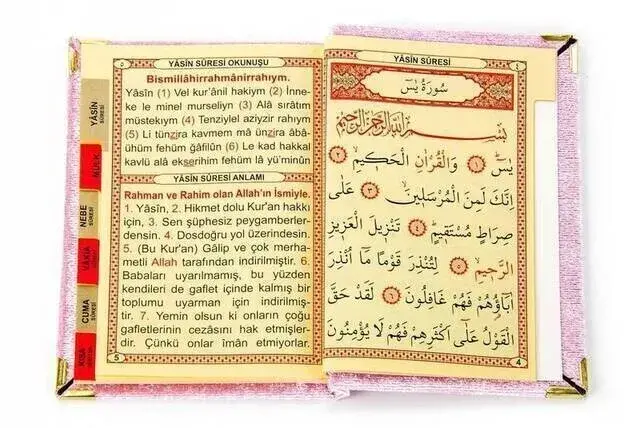 ٥
YÂSİN SÛRESİ OKUNUŞU
Bismillâhirrahmânirrahıym.
Yâsîn (1) Vel kur'ânil hakiym (2) İnne-
ke le minel murseliyn (3) Alâ sırâtım
müstekıym (4) Tenziylel aziyzir rahıym
(5) Li tünzira kavmem mâ ünzira âbâ-
ühüm fehüm gâfilûn (6) Le kad hakkal
kavlü alâ ekserihim fehüm lâ yü'minûn
YÂSİN SÛRESİ ANLAMI
Rahman ve Rahim olan Allah'ın İsmiyle.
1. Yâsîn, 2. Hikmet dolu Kur'an hakkı
için, 3. Sen şüphesiz peygamberler-
densin. 4. Dosdoğru yol üzerindesin.
5. (Bu Kur'an) Gâlip ve çok merha-
metli Allah tarafından indirilmiştir. 6.
Babaları uyarılmamış, bu yüzden
kendileri de gaflet içinde kalmış bir
toplumu uyarman için indirilmiş-
tir. 7. Yemin olsun ki onların çoğu
gafletlerinin cezasını hak etmişler-
dir. Çünkü onlar îmân etmiyorlar.
5
YÂSİN
SÛRESİ
MÜLK
NEBE
SÛRESİ
VAKIA
CUMA
SÛRESİ
KISA
YÂSİN SÛRESİ
٤
سُورَةُ يٰسٓ
بِسْمِ اللّٰهِ الرَّحْمٰنِ الرَّحِيمِ
يٰسٓ ۝١ وَالْقُرْاٰنِ الْحَكِيمِ ۝٢
اِنَّكَ لَمِنَ الْمُرْسَلِينَ ۝٣ عَلٰى
صِرَاطٍ مُسْتَقِيمٍ ۝٤ تَنْزِيلَ الْعَزِيزِ
الرَّحِيمِ ۝٥ لِتُنْذِرَ قَوْمًا مَا اُنْذِرَ
اٰبَاؤُهُمْ فَهُمْ غَافِلُونَ ۝٦ لَقَدْ حَقَّ
الْقَوْلُ عَلٰى اَكْثَرِهِمْ فَهُمْ لَا يُؤْمِنُونَ
4